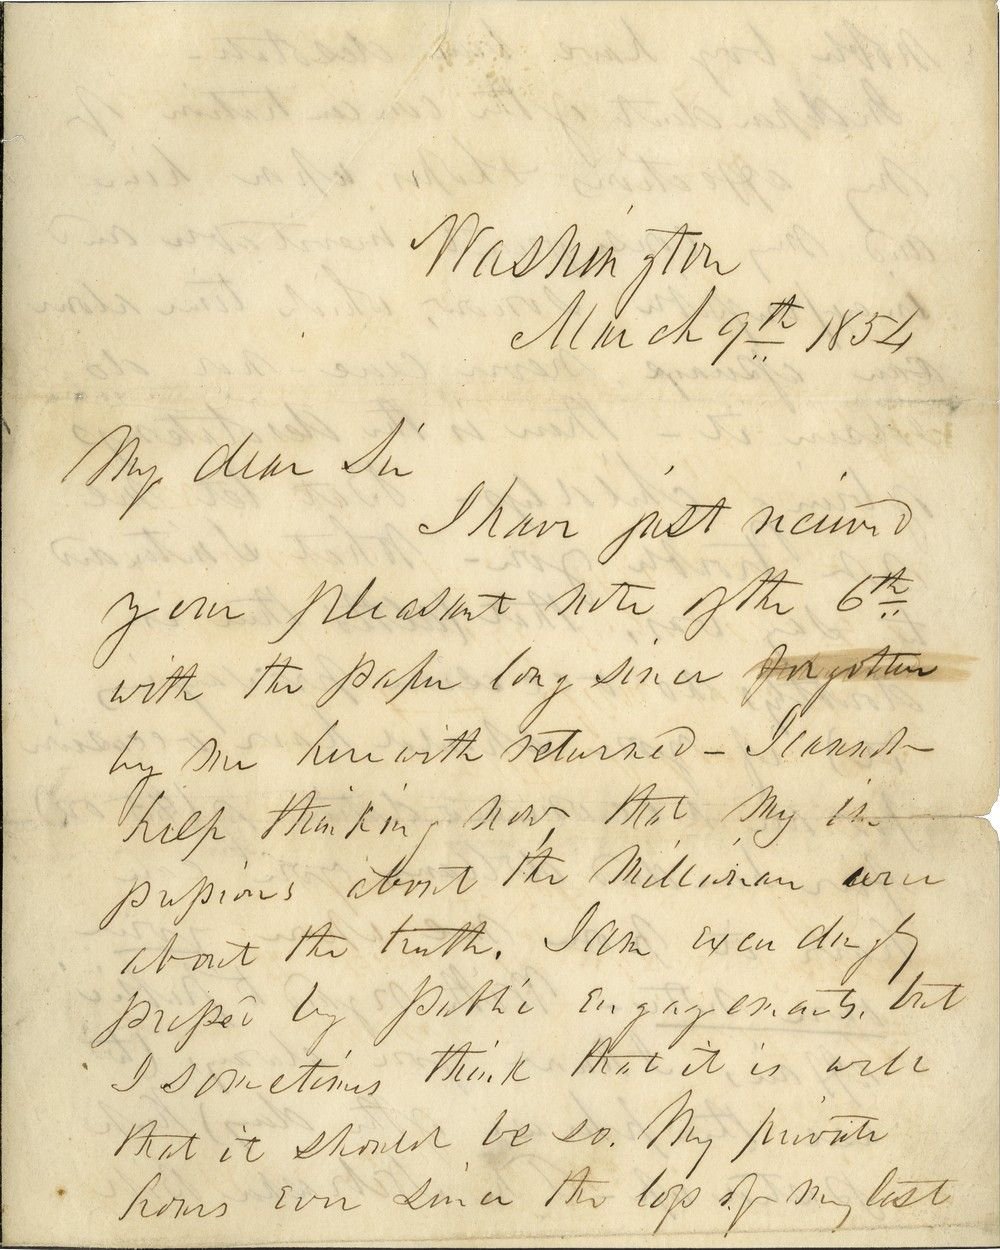 Washington
March 9th 1854
My dear Sir
I have just received
your pleasant note of the 6th
with the paper long since forgotten
by me herewith returned – I cannot
help thinking now that my im
pressions about the Millerian were
about the truth. I am exceedingly
pressed by public engagements, but
I sometimes think that it is well
that it should be so. My private
hours ever since the loss of my last